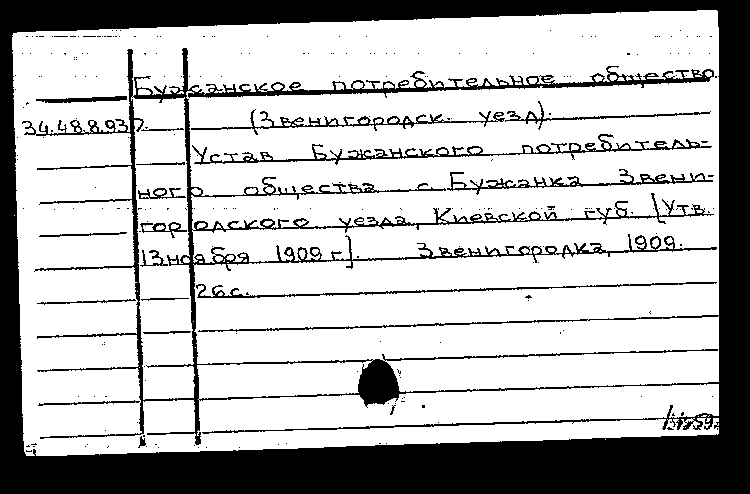 Бужанское потребительное общество
34.48.8.937. (Звенигородск. уезд).
Устав Бужанского потребитель-
ного общества с. Бужанка Звени-
городского уезда, Киевской губ. [Утв.
13 ноября 1909 г.]. Звенигородка, 1909.
26 с.